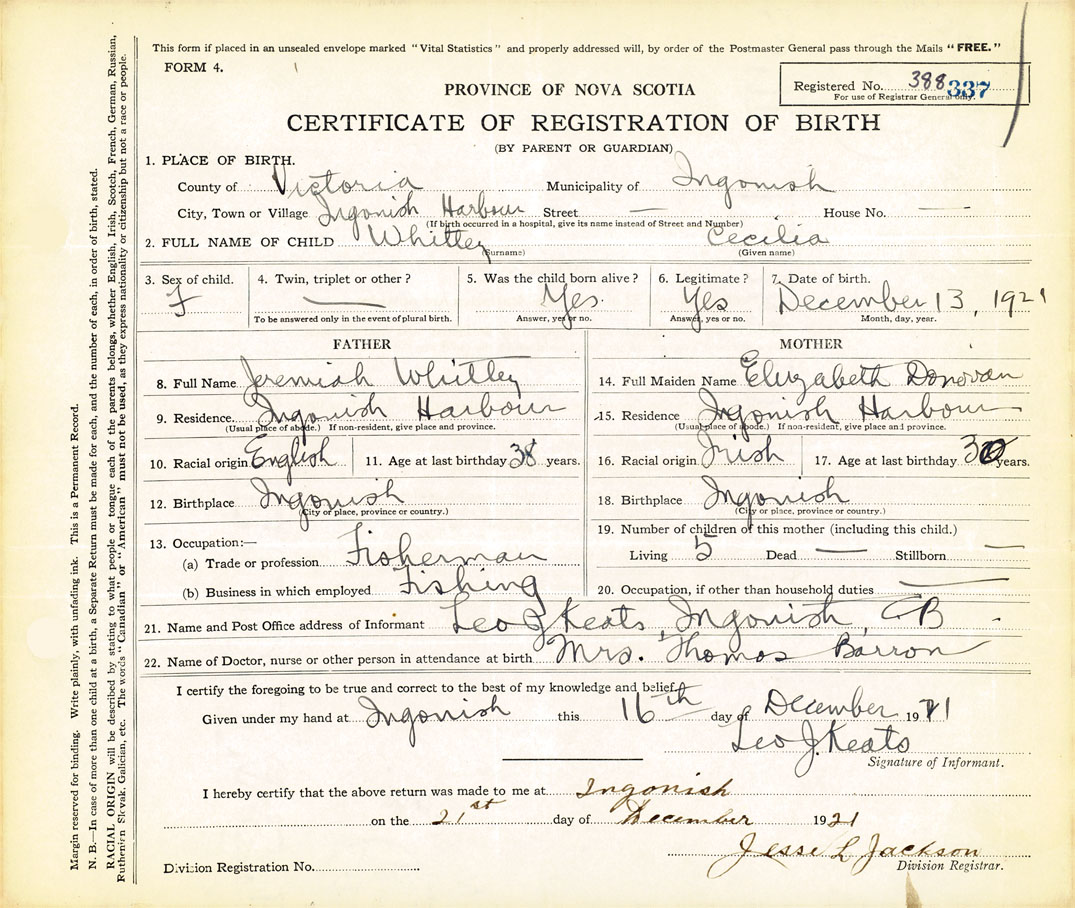 This form if placed in an unsealed envelope marked "Vital Statistics" and properly addressed will, by order of the Postmaster General pass through the Mails "FREE."
FORM 4.
Registered No. 388 337
For use of Registrar General only.
PROVINCE OF NOVA SCOTIA
CERTIFICATE OF REGISTRATION OF BIRTH
(BY PARENT OR GUARDIAN)
1. PLACE OF BIRTH.
County of Victoria Municipality of Ingonish
City, Town or Village Ingonish Harbour Street — House No. —
(If birth occurred in a hospital, give its name instead of Street and Number)
2. FULL NAME OF CHILD Whitley Cecilia
(Surname) (Given name)
3. Sex of child. 4. Twin, triplet or other? 5. Was the child born alive? 6. Legitimate? 7. Date of birth.
F — Yes. Yes December 13, 1921
To be answered only in the event of plural birth. Answer, yes or no. Answer, yes or no. Month, day, year.
FATHER MOTHER
8. Full Name Jeremiah Whitley 14. Full Maiden Name Elizabeth Donovan
9. Residence Ingonish Harbour 15. Residence Ingonish Harbour
(Usual place of abode.) If non-resident, give place and province. (Usual place of abode.) If non-resident, give place and province.
10. Racial origin English 11. Age at last birthday 38 years. 16. Racial origin Irish 17. Age at last birthday 30 years.
12. Birthplace Ingonish 18. Birthplace Ingonish
(City or place, province or country.) (City or place, province or country.)
19. Number of children of this mother (including this child.)
13. Occupation:— Living 5 Dead — Stillborn —
(a) Trade or profession Fisherman
(b) Business in which employed Fishing 20. Occupation, if other than household duties —
21. Name and Post Office address of Informant Leo J Keats, Ingonish, CB
22. Name of Doctor, nurse or other person in attendance at birth Mrs. Thomas Barron
I certify the foregoing to be true and correct to the best of my knowledge and belief.
Given under my hand at Ingonish this 16th day of December 1921
Leo J. Keats
Signature of Informant.
I hereby certify that the above return was made to me at Ingonish
on the 21st day of December 1921
Jesse L Jackson
Division Registration No. Division Registrar.
Margin reserved for binding. Write plainly, with unfading ink. This is a Permanent Record.
N. B.—In case of more than one child at a birth, a Separate Return must be made for each, and the number of each, in order of birth, stated.
RACIAL ORIGIN will be described by stating to what people or tongue each of the parents belongs, whether English, Irish, Scotch, French, German, Russian,
Ruthenian Slovak, Galician, etc. The words "Canadian" or "American" must not be used, as they express nationality or citizenship but not a race or people.